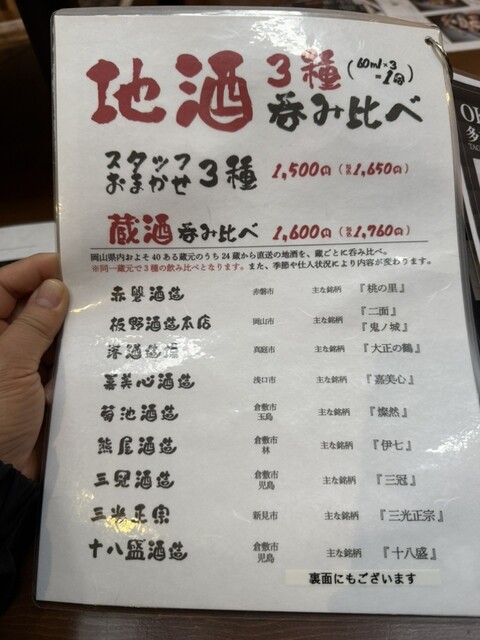 地酒 3種 (60ml×3
=1合)
呑み比べ
スタッフ
おまかせ 3種 1,500円 (税込1,650円)
蔵酒 呑み比べ 1,600円 (税込1,760円)
岡山県内およそ40ある蔵元のうち24蔵から直送の地酒を、蔵ごとに呑み比べ。
※同一蔵元で3種の飲み比べとなります。また、季節や仕入状況により内容が変わります。
赤磐酒造 赤磐市 主な銘柄 『桃の里』
板野酒造本店 岡山市 主な銘柄 『二面』
『鬼ノ城』
落酒造場 真庭市 主な銘柄 『大正の鶴』
嘉美心酒造 浅口市 主な銘柄 『嘉美心』
菊池酒造 倉敷市
玉島 主な銘柄 『燦然』
熊屋酒造 倉敷市
林 主な銘柄 『伊七』
三冠酒造 倉敷市
児島 主な銘柄 『三冠』
三光正宗 新見市 主な銘柄 『三光正宗』
十八盛酒造 倉敷市
児島 主な銘柄 『十八盛』
裏面にもございます